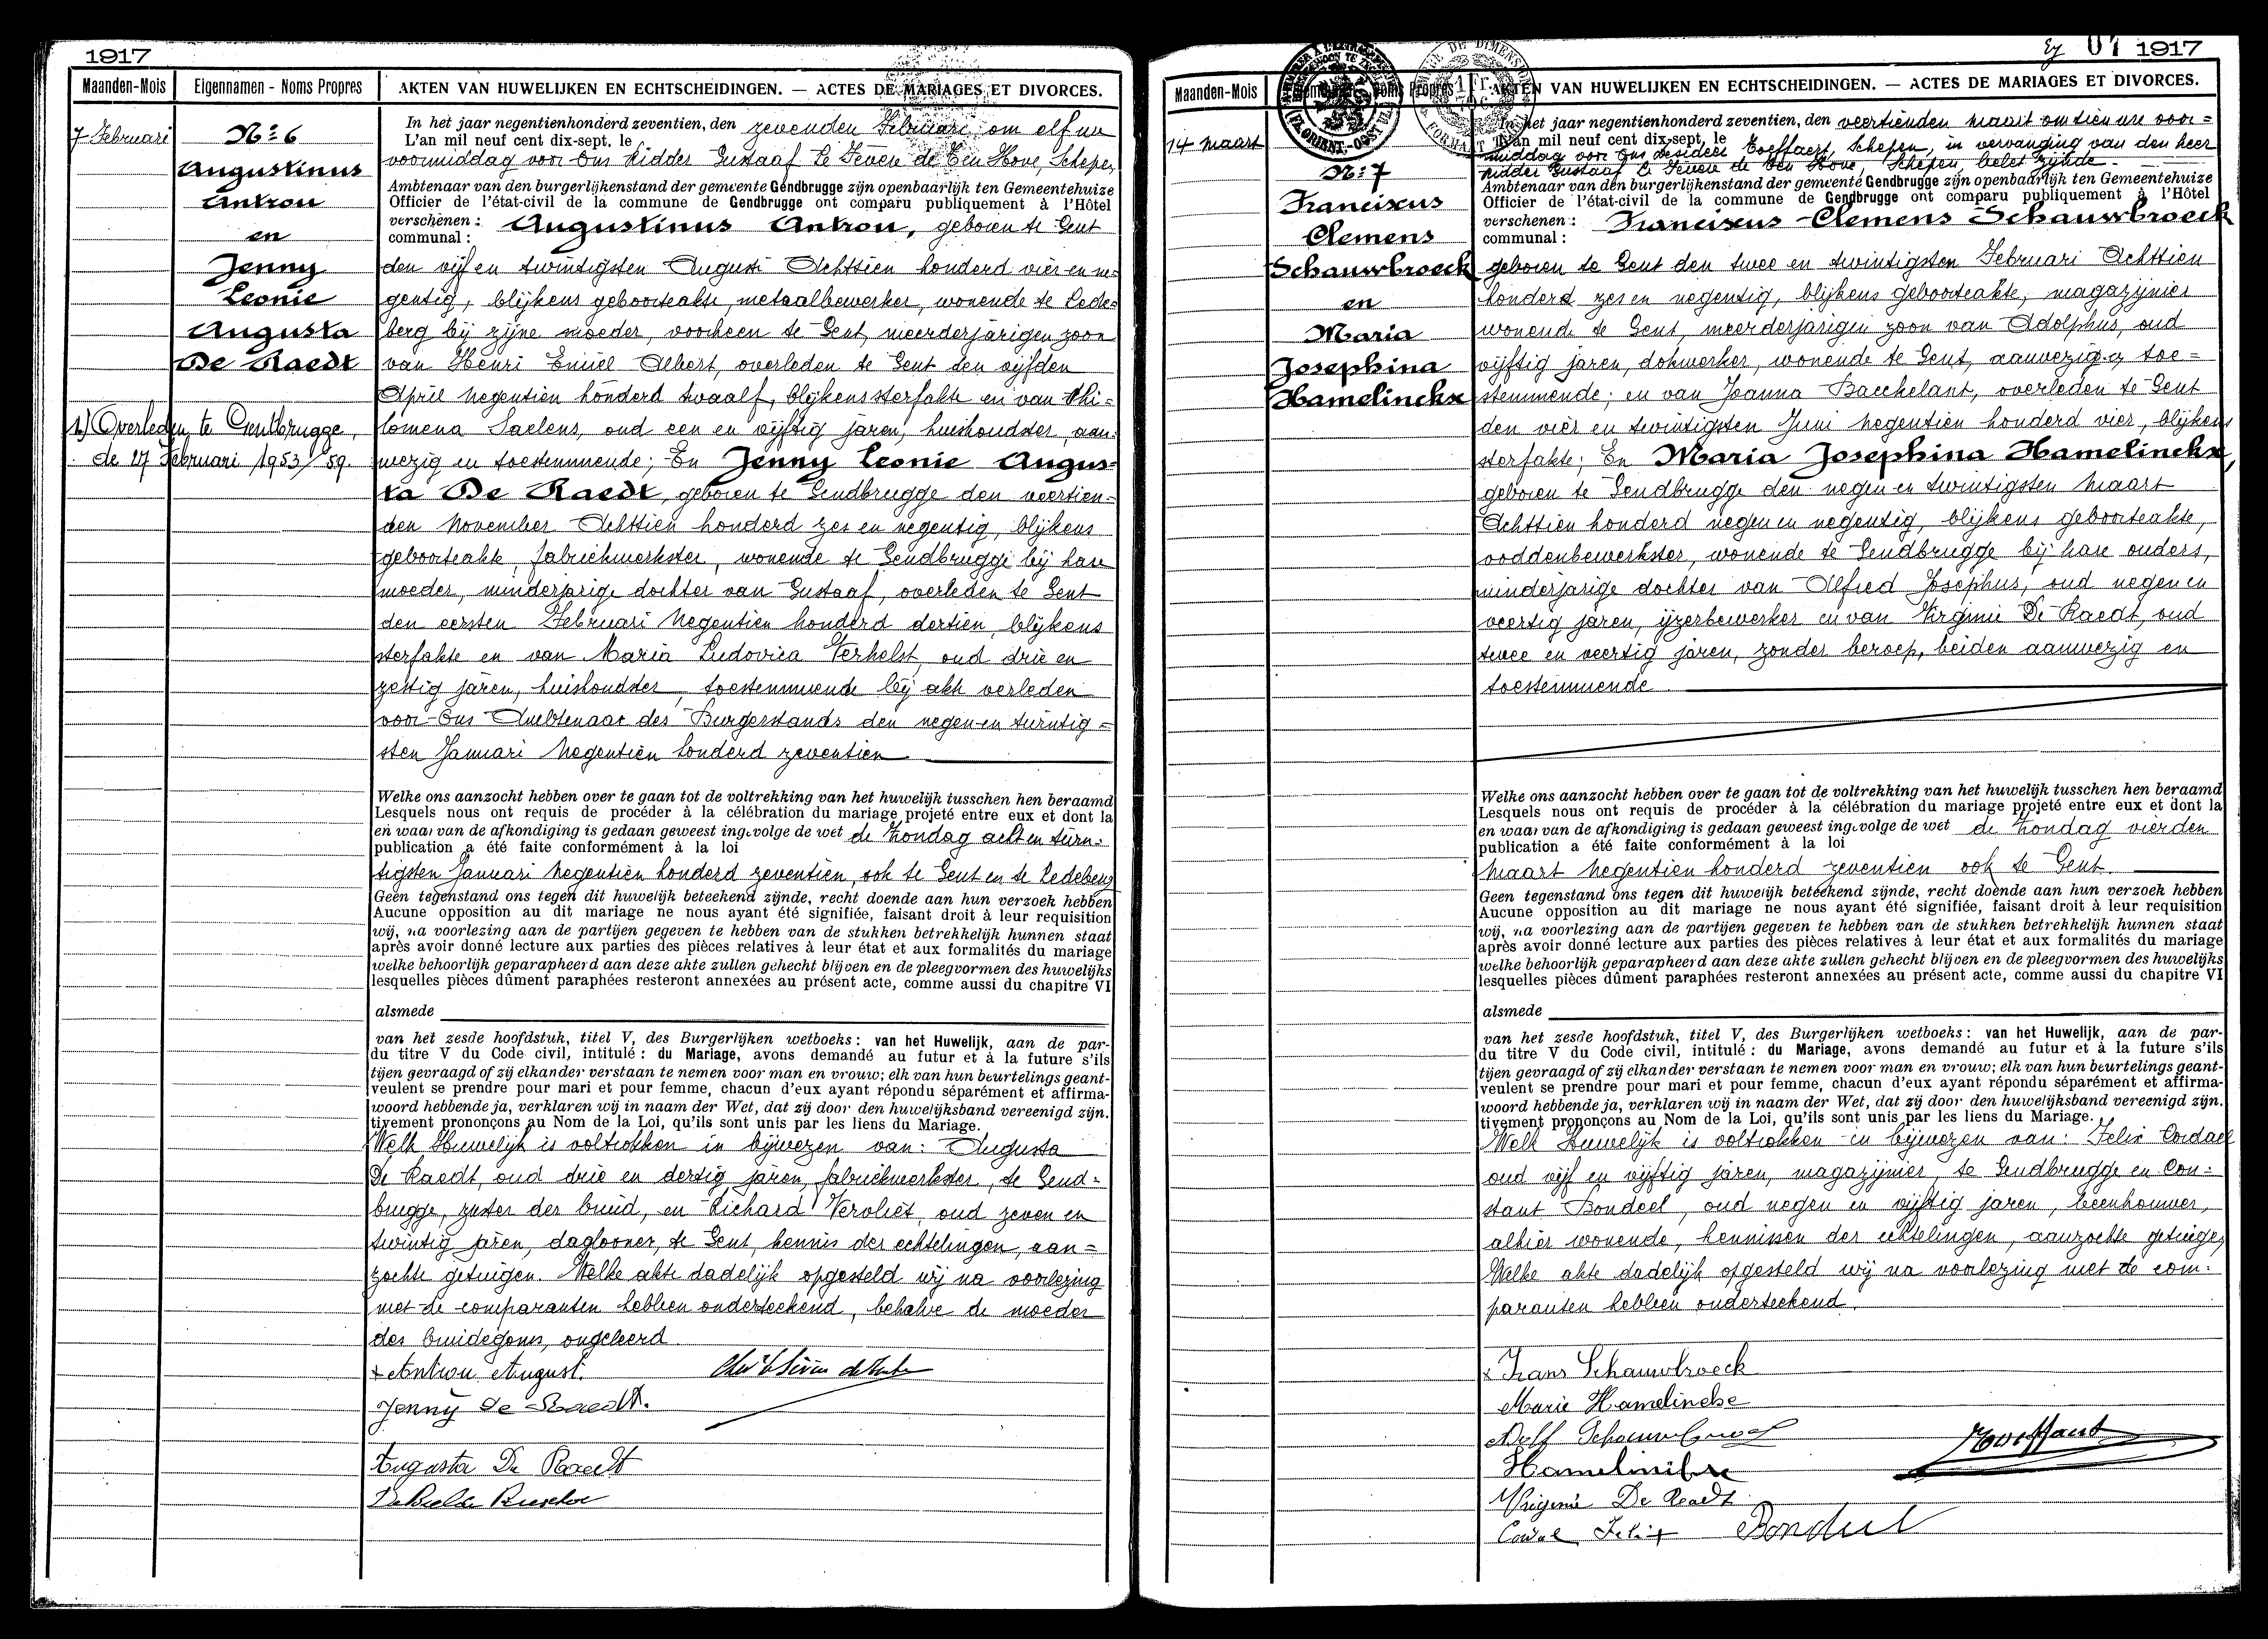 1917
Maanden-Mois
Eigennamen - Noms Propres
AKTEN VAN HUWELIJKEN EN ECHTSCHEIDINGEN. — ACTES DE MARIAGES ET DIVORCES.
7 Februari
Nr 6
Augustinus
Antrou
en
Jenny
Leonie
Augusta
De Raedt
Overleden te Gentbrugge,
de 27 Februari 1953/59.
In het jaar negentienhonderd zeventien, den zevenden Februari om elf ure
L'an mil neuf cent dix-sept, le
voormiddag voor Ons Ridder Gustaaf Le Fevere de Ten Hove, Schepen,
Ambtenaar van den burgerlijkenstand der gemeente Gendbrugge zijn openbaarlijk ten Gemeentehuize
Officier de l'état-civil de la commune de Gendbrugge ont comparu publiquement à l'Hôtel
verschenen : Augustinus Antrou, geboren te Gent
communal :
den vijf en twintigsten Augusti Achttien honderd vier en ne-
gentig, blijkens geboorteakte, metaalbewerker, wonende te Lede-
berg bij zijne moeder, voorheen te Gent, meerderjarigen zoon
van Henri Emiel Albert, overleden te Gent den vijfden
April Negentien honderd twaalf, blijkens sterfakte en van Phi-
lomena Saelens, oud een en vijftig jaren, huishoudster, aan-
wezig en toestemmende; En Jenny Leonie Augus-
ta De Raedt, geboren te Gendbrugge den veertien-
den November Achttien honderd zes en negentig, blijkens
geboorteakte, fabriekwerkster, wonende te Gendbrugge bij hare
moeder, minderjarige dochter van Gustaaf, overleden te Gent
den eersten Februari Negentien honderd dertien, blijkens
sterfakte en van Maria Ludovica Verhelst, oud drie en
zestig jaren, huishoudster, toestemmende bij akte verleden
voor Ons Ambtenaar des Burgerstands den negen en twintig=
sten Januari Negentien honderd zeventien
Welke ons aanzocht hebben over te gaan tot de voltrekking van het huwelijk tusschen hen beraamd
Lesquels nous ont requis de procéder à la célébration du mariage projeté entre eux et dont la
en waar van de afkondiging is gedaan geweest ingevolge de wet de Zondag acht en twin-
publication a été faite conformément à la loi
tigsten Januari Negentien honderd zeventien, ook te Gent en te Ledeberg
Geen tegenstand ons tegen dit huwelijk beteekend zijnde, recht doende aan hun verzoek hebben
Aucune opposition au dit mariage ne nous ayant été signifiée, faisant droit à leur requisition
wij, na voorlezing aan de partijen gegeven te hebben van de stukken betrekkelijk hunnen staat
après avoir donné lecture aux parties des pièces relatives à leur état et aux formalités du mariage
welke behoorlijk geparapheerd aan deze akte zullen gehecht blijven en de pleegvormen des huwelijks
lesquelles pièces dûment paraphées resteront annexées au présent acte, comme aussi du chapitre VI
alsmede
van het zesde hoofdstuk, titel V, des Burgerlijken wetboeks : van het Huwelijk, aan de par-
du titre V du Code civil, intitulé : du Mariage, avons demandé au futur et à la future s'ils
tijen gevraagd of zij elkander verstaan te nemen voor man en vrouw; elk van hun beurtelings geant-
veulent se prendre pour mari et pour femme, chacun d'eux ayant répondu séparément et affirma-
woord hebbende ja, verklaren wij in naam der Wet, dat zij door den huwelijksband vereenigd zijn.
tivement prononçons au Nom de la Loi, qu'ils sont unis par les liens du Mariage.
Welk Huwelijk is voltrokken in bijwezen van: Augusta
De Raedt, oud drie en dertig jaren, fabriekwerkster, te Gend-
brugge, zuster der bruid, en Richard Vervliet, oud zeven en
twintig jaren, daglooner, te Gent, kennis der echtelingen, aan=
zochte getuigen. Welke akte dadelijk opgesteld wij na voorlezing
met de comparanten hebben onderteekend, behalve de moeder
des bruidegoms, ongeleerd.
x Antrou August.
Jenny De Raedt.
Augusta De Raedt
1917
Maanden-Mois
AKTEN VAN HUWELIJKEN EN ECHTSCHEIDINGEN. — ACTES DE MARIAGES ET DIVORCES.
14 Maart
Nr 7
Franciscus
Clemens
Schauwbroeck
en
Maria
Josephina
Hamelinckx
In het jaar negentienhonderd zeventien, den veertienden Maart om tien ure voor=
L'an mil neuf cent dix-sept, le
middag voor Ons Desideer Toeffaert, Schepen, in vervanging van den heer
Ridder Gustaaf Le Fevere de Ten Hove, Schepen, belet zijnde.
Ambtenaar van den burgerlijkenstand der gemeente Gendbrugge zijn openbaarlijk ten Gemeentehuize
Officier de l'état-civil de la commune de Gendbrugge ont comparu publiquement à l'Hôtel
verschenen : Franciscus Clemens Schauwbroeck
communal :
geboren te Gent den twee en twintigsten Februari Achttien
honderd zes en negentig, blijkens geboorteakte, magazijnier
wonende te Gent, meerderjarigen zoon van Adolphus, oud
vijftig jaren, dokwerker, wonende te Gent, aanwezig en toe=
stemmende; en van Joanna Bacchelant, overleden te Gent
den vier en twintigsten Juni Negentien honderd vier, blijkens
sterfakte; En Maria Josephina Hamelinckx,
geboren te Gendbrugge den negen en twintigsten Maart
Achttien honderd negen en negentig, blijkens geboorteakte,
voddenbewerkster, wonende te Gendbrugge bij hare ouders,
minderjarige dochter van Alfred Josephus, oud negen en
veertig jaren, ijzerbewerker en van Virginie De Raedt, oud
twee en veertig jaren, zonder beroep, beiden aanwezig en
toestemmende.
Welke ons aanzocht hebben over te gaan tot de voltrekking van het huwelijk tusschen hen beraamd
Lesquels nous ont requis de procéder à la célébration du mariage projeté entre eux et dont la
en waar van de afkondiging is gedaan geweest ingevolge de wet de Zondag vierden
publication a été faite conformément à la loi
Maart Negentien honderd zeventien ook te Gent.
Geen tegenstand ons tegen dit huwelijk beteekend zijnde, recht doende aan hun verzoek hebben
Aucune opposition au dit mariage ne nous ayant été signifiée, faisant droit à leur requisition
wij, na voorlezing aan de partijen gegeven te hebben van de stukken betrekkelijk hunnen staat
après avoir donné lecture aux parties des pièces relatives à leur état et aux formalités du mariage
welke behoorlijk geparapheerd aan deze akte zullen gehecht blijven en de pleegvormen des huwelijks
lesquelles pièces dûment paraphées resteront annexées au présent acte, comme aussi du chapitre VI
alsmede
van het zesde hoofdstuk, titel V, des Burgerlijken wetboeks : van het Huwelijk, aan de par-
du titre V du Code civil, intitulé : du Mariage, avons demandé au futur et à la future s'ils
tijen gevraagd of zij elkander verstaan te nemen voor man en vrouw; elk van hun beurtelings geant-
veulent se prendre pour mari et pour femme, chacun d'eux ayant répondu séparément et affirma-
woord hebbende ja, verklaren wij in naam der Wet, dat zij door den huwelijksband vereenigd zijn.
tivement prononçons au Nom de la Loi, qu'ils sont unis par les liens du Mariage.
Welk Huwelijk is voltrokken in bijwezen van: Felix Cordael
oud vijf en vijftig jaren, magazijnier, te Gendbrugge en Con-
stant Bondeel, oud negen en vijftig jaren, beenhouwer,
alhier wonende, kennissen der echtelingen, aanzochte getuigen
Welke akte dadelijk opgesteld wij na voorlezing met de com-
paranten hebben onderteekend.
x Frans Schauwbroeck
Marie Hamelinckx
Adolf Schauwbroeck
Hamelinckx
Virginie De Raedt
Felix